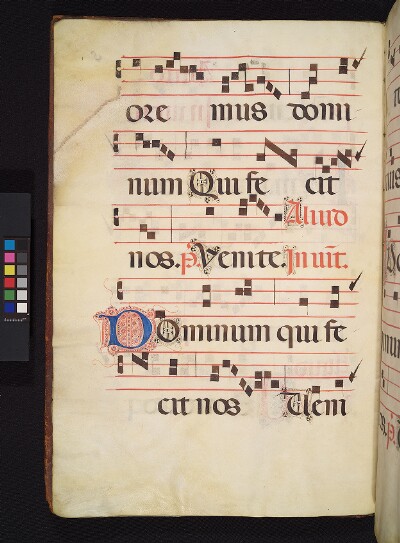 ore mus domi
num Qui fe cit
nos. p̄. Venite. Aliud
Inuit̄.
Dominum qui fe
cit nos Veni